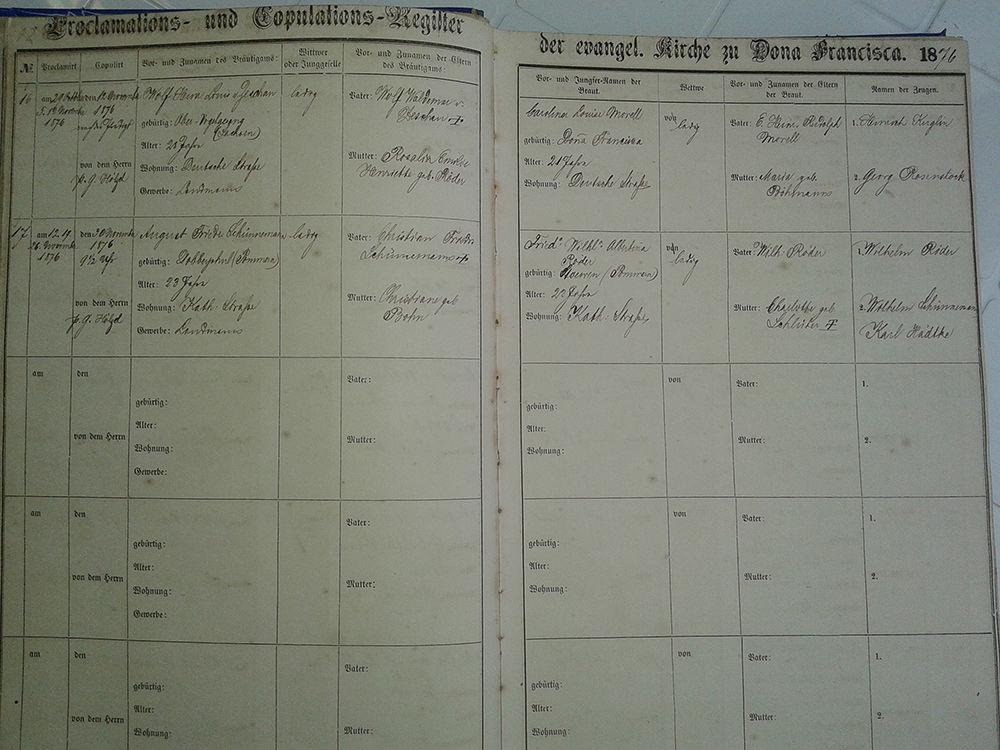 Proclamations- und Copulations-Register
der evangel. Kirche zu Dona Francisca. 1876
№ Proclamirt Copulirt Vor- und Zunamen des Bräutigams: Wittwer oder Junggeselle Vor- und Zunamen der Eltern des Bräutigams:
Vor- und Jungfer-Namen der Braut. Wittwe Vor- und Zunamen der Eltern der Braut. Namen der Zeugen.
16 am den Wolf Louis v. ledig Vater: Wolf Waldemar v.
1876 1876
gebürtig:
Alter: 21 Jahre
von dem Herrn Wohnung: Deutsche Straße Mutter: Rosalie
p. g. Hölzel Gewerbe: Landmann Henriette geb. Röder
Carolina Louise Morell von ledig Vater: E. Heinr. Rudolph Morell 1. Heinrich
gebürtig: Dona Francisca
Alter: 21 Jahre
Wohnung: Deutsche Straße Mutter: Maria geb. 2. Georg Rosenstock
17 am 12. 19. 26. Novemb. 1876 den 1876 9½ Uhr August Friedr. Schünnemann ledig Vater: Christian Friedr. Schünemann +
gebürtig: (Pommern)
Alter: 23 Jahre
von dem Herrn Wohnung: Kath. Straße Mutter: Christiane geb.
p. g. Hölzel Gewerbe: Landmann
Fried. Wilh. Albertina Röder von ledig Vater: Wilh. Röder 1. Wilhelm Röder
gebürtig: (Pommern)
Alter: 22 Jahre
Wohnung: Kath. Straße Mutter: Charlotte geb. Schlüter + 2. Wilhelm Schünneman
Karl Hädtke
am den Vater: von Vater: 1.
gebürtig: gebürtig:
Alter: Alter:
von dem Herrn Wohnung: Mutter: Wohnung: Mutter: 2.
Gewerbe:
am den Vater: von Vater: 1.
gebürtig: gebürtig:
Alter: Alter:
von dem Herrn Wohnung: Mutter: Wohnung: Mutter: 2.
Gewerbe:
am den Vater: von Vater: 1.
gebürtig: gebürtig:
Alter: Alter:
von dem Herrn Wohnung: Mutter: Wohnung: Mutter: 2.